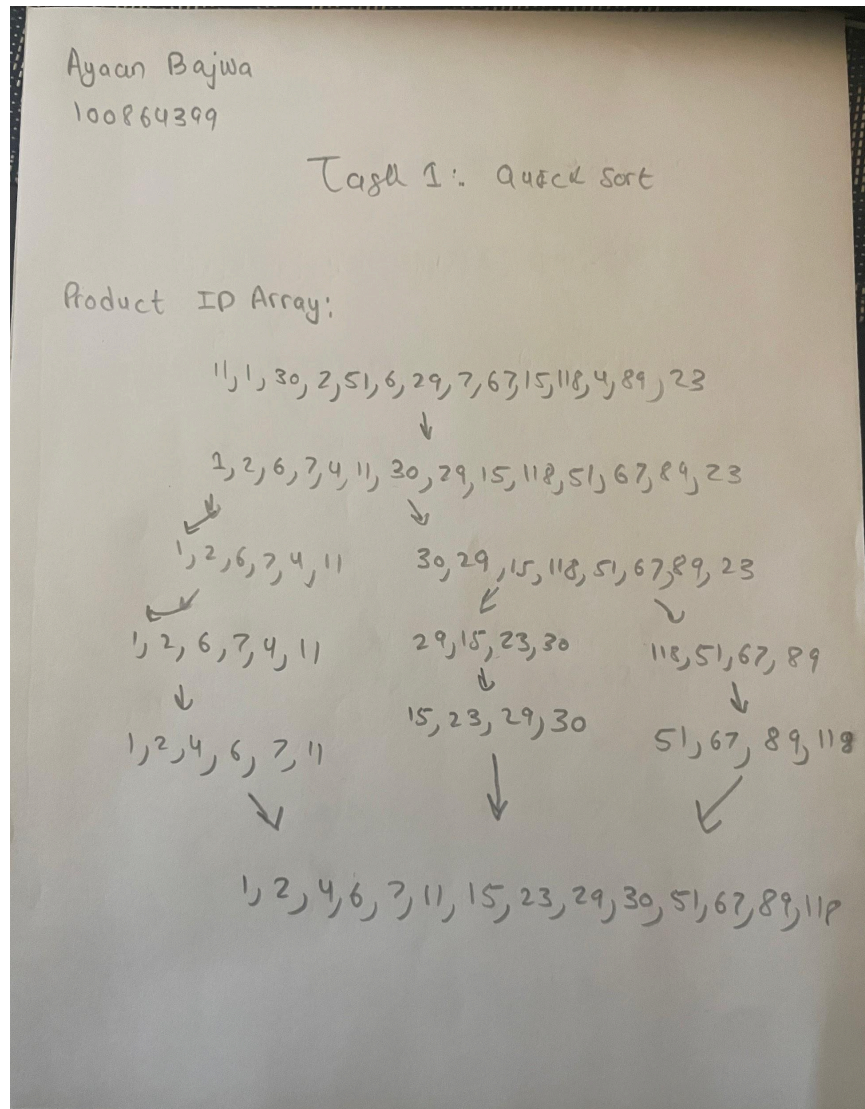 Ayaan Bajwa
100864399
Task 1: Quick Sort
Product ID Array:
11, 1, 30, 2, 51, 6, 29, 7, 67, 15, 118, 4, 89, 23
1, 2, 6, 7, 4, 11, 30, 29, 15, 118, 51, 67, 89, 23
1, 2, 6, 7, 4, 11 30, 29, 15, 118, 51, 67, 89, 23
1, 2, 6, 7, 4, 11 29, 15, 23, 30 118, 51, 67, 89
1, 2, 4, 6, 7, 11 15, 23, 29, 30 51, 67, 89, 118
1, 2, 4, 6, 7, 11, 15, 23, 29, 30, 51, 67, 89, 118